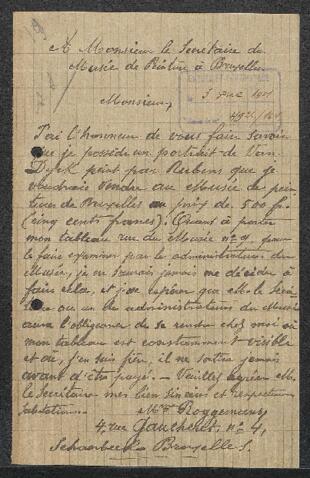 A Monsieur le Secrétaire du
Musée de Peinture à Bruxelles
Monsieur,
J'ai l'honneur de vous faire savoir
que je possède un portrait de Van
Dyck peint par Rubens que je
voudrais vendre au Musée de pein
ture de Bruxelles au prix de 500 fr.
(cinq cents francs). Quant à porter
mon tableau rue du Musée n° 9, pour
le faire examiner par les administrateurs du
Musée, je ne saurais jamais me décider à
faire cela, et j'ose espérer que M. le Secré
taire ou un des administrateurs du Musée
aura l'obligeance de se rendre chez moi où
mon tableau est constamment visible
et où, j'en suis sûr, il ne sortira jamais
avant d'être payé. - Veuillez agréer M.
le Secrétaire mes bien sincères et respectueuses
salutations.
Roggemans
4, rue Gaucheret, n° 4,
Schaerbeek Bruxelles.